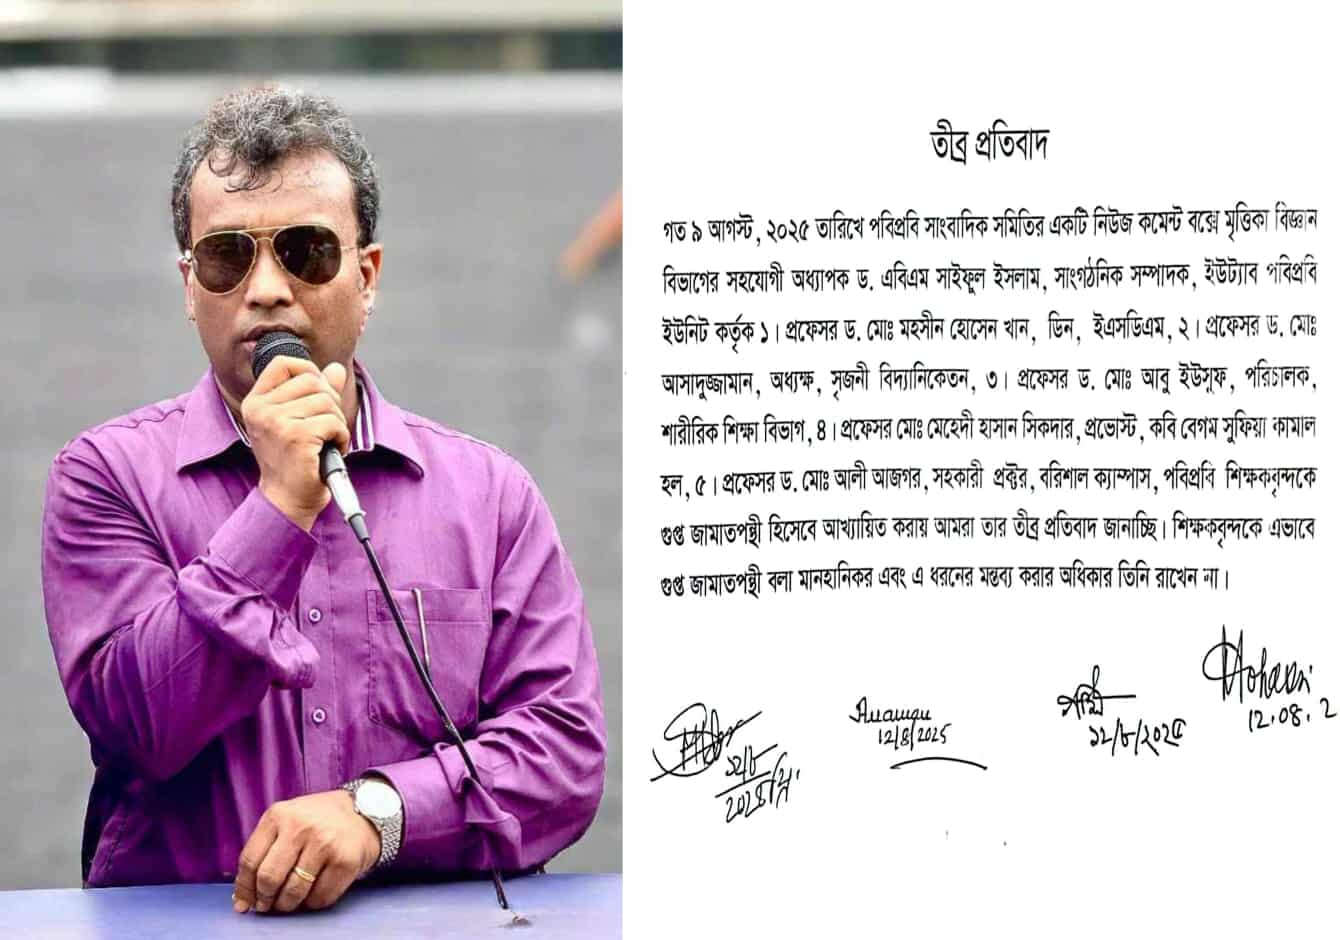 তীব্র প্রতিবাদ
গত ৯ আগস্ট, ২০২৫ তারিখে পবিপ্রবি সাংবাদিক সমিতির একটি নিউজ কমেন্ট বক্সে মৃত্তিকা বিজ্ঞান
বিভাগের সহযোগী অধ্যাপক ড. এবিএম সাইফুল ইসলাম, সাংগঠনিক সম্পাদক, ইউট্যাব পবিপ্রবি
ইউনিট কর্তৃক ১। প্রফেসর ড. মোঃ মহসীন হোসেন খান, ডিন, ইএসডিএম, ২। প্রফেসর ড. মোঃ
আসাদুজ্জামান, অধ্যক্ষ, সৃজনী বিদ্যানিকেতন, ৩। প্রফেসর ড. মোঃ আবু ইউসুফ, পরিচালক,
শারীরিক শিক্ষা বিভাগ, ৪। প্রফেসর মোঃ মেহেদী হাসান সিকদার, প্রভোস্ট, কবি বেগম সুফিয়া কামাল
হল, ৫। প্রফেসর ড. মোঃ আলী আজগর, সহকারী প্রক্টর, বরিশাল ক্যাম্পাস, পবিপ্রবি শিক্ষকবৃন্দকে
গুপ্ত জামাতপন্থী হিসেবে আখ্যায়িত করায় আমরা তার তীব্র প্রতিবাদ জানাচ্ছি। শিক্ষকবৃন্দকে এভাবে
গুপ্ত জামাতপন্থী বলা মানহানিকর এবং এ ধরনের মন্তব্য করার অধিকার তিনি রাখেন না।
12/8/2025
১২/৮/২০২৫
12.08.2